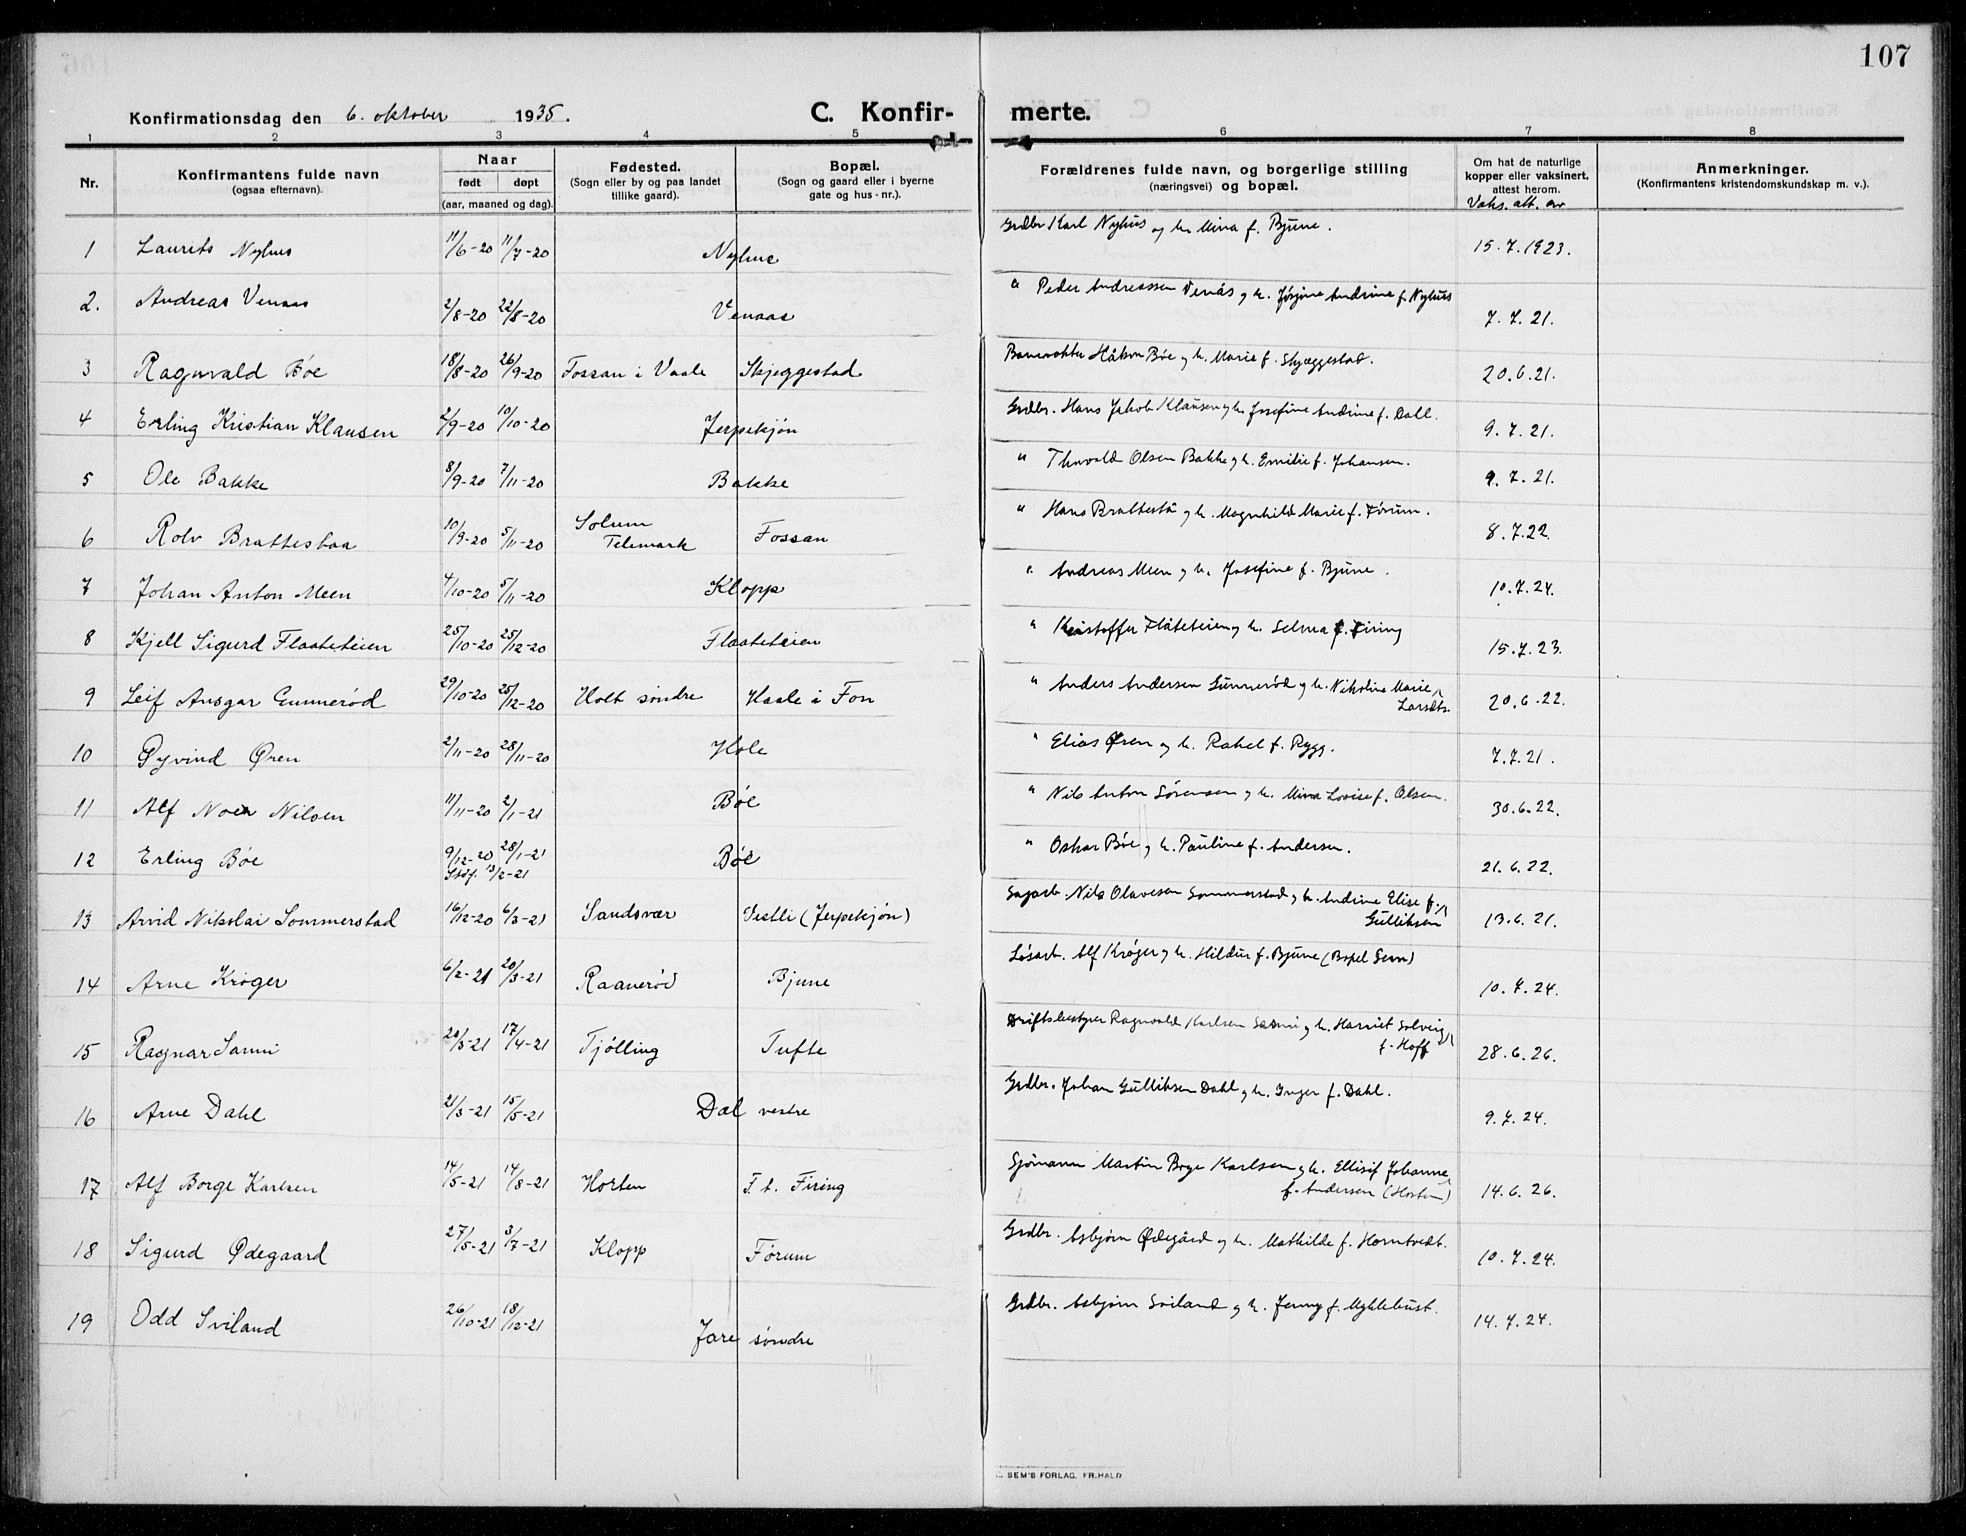 107
Konfirmationsdag den 6. oktober 1935.
C. Konfir- merte.
1 2 3 4 5 6 7 8
Nr.
Konfirmantens fulde navn
(ogsaa efternavn).
Naar
født døpt
(aar, maaned og dag).
Fødested.
(Sogn eller by og paa landet
tillike gaard).
Bopæl.
(Sogn og gaard eller i byerne
gate og hus-nr.).
Forældrenes fulde navn, og borgerlige stilling
(næringsvei) og bopæl.
Om hat de naturlige
kopper eller vaksinert,
attest herom.
Vaks. att. av
Anmerkninger.
(Konfirmantens kristendomskundskap m. v.).
1 Laurits Nyhus 11/6-20 11/7-20 Nyhus Grdbr Karl Nyhus og h. Mina f. Bjune. 15.7.1923.
2. Andreas Venaas 2/8-20 22/8-20 Venaas " Peder Andreassen Venås og h. Jørgine Andrine f. Nyhus 7.7.21.
3 Ragnvald Bøe 18/8-20 26/9-20 Fossan i Vaale Skjeggestad Banevokter Håkon Bøe og h. Marie f. Skjeggestad. 20.6.21.
4 Erling Kristian Klausen 2/9-20 10/10-20 Jerpekjøn Grdbr. Hans Jakob Klausen og h. Josefine Andrine f. Dall. 9.7.21.
5 Ole Bakke 8/9-20 7/11-20 Bakke " Thorvald Olsen Bakke og h. Emilie f. Johansen. 9.7.21.
6 Rolv Brattestaa 10/9-20 5/11-20 Solum Telemark Fossan " Hans Brattestå og h. Magnhild Marie f. Førum. 8.7.22.
7 Johan Anton Meen 4/10-20 5/11-20 Klopp " Andreas Meen og h. Josefine f. Bjune. 10.7.24.
8 Kjell Sigurd Flaateteien 25/10-20 25/12-20 Flaateteien " Kristoffer Flåteteien og h. Selma f. Firing 15.7.23.
9 Leif Ansgar Gunnerød 29/10-20 25/12-20 Holt søndre Haale i Fon " Anders Andersen Gunnerød og h. Nikoline Marie Larsdtr. 20.6.22.
10 Øyvind Øren 2/11-20 28/11-20 Hole " Elias Øren og h. Rakel f. Rygg. 7.7.21.
11 Alf Noen Nilsen 11/11-20 2/1-21 Bøe " Nils Anton Sørensen og h. Mina Lovise f. Olsen. 30.6.22.
12 Erling Bøe 9/12-20 28/1-21 Stdf. 13/2-21 Bøe " Oskar Bøe og h. Pauline f. Andersen. 21.6.22.
13 Arvid Nikolai Sommerstad 16/12-20 6/3-21 Sandsvær Vestli (Jerpekjøn) Sagarb. Nils Olavesen Sommerstad og h. Andrine Elise f. Gulliksen 13.6.21.
14 Arne Krøger 6/2-21 20/3-21 Raanerød Bjune Løsarb. Alf Krøger og h. Hildur f. Bjune (Bopel Sem) 10.7.24.
15 Ragnar Sanni 20/3-21 17/4-21 Tjølling Tufte Driftsbestyrer Ragnvald Karlsen Sanni og h. Harriet Solveig f. Hoff 28.6.26.
16 Arne Dahl 21/3-21 15/5-21 Dal vestre Grdbr. Johan Gulliksen Dahl og h. Inger f. Dahl. 9.7.24.
17 Alf Borge Karlsen 14/5-21 14/8-21 Horten F. t. Firing Sjømann Martin Borge Karlsen og h. Ellisif Johanne f. Andersen (Horten) 14.6.26.
18 Sigurd Ødegaard 27/5-21 3/7-21 Klopp Førum Grdbr. Asbjørn Ødegård og h. Mathilde f. Horntvedt. 10.7.24.
19 Odd Sviland 26/10-21 18/12-21 Jare søndre Grdbr. Asbjørn Sviland og h. Jenny f. Myklebust. 14.7.24.
SEM'S FORLAG, FR.HALD